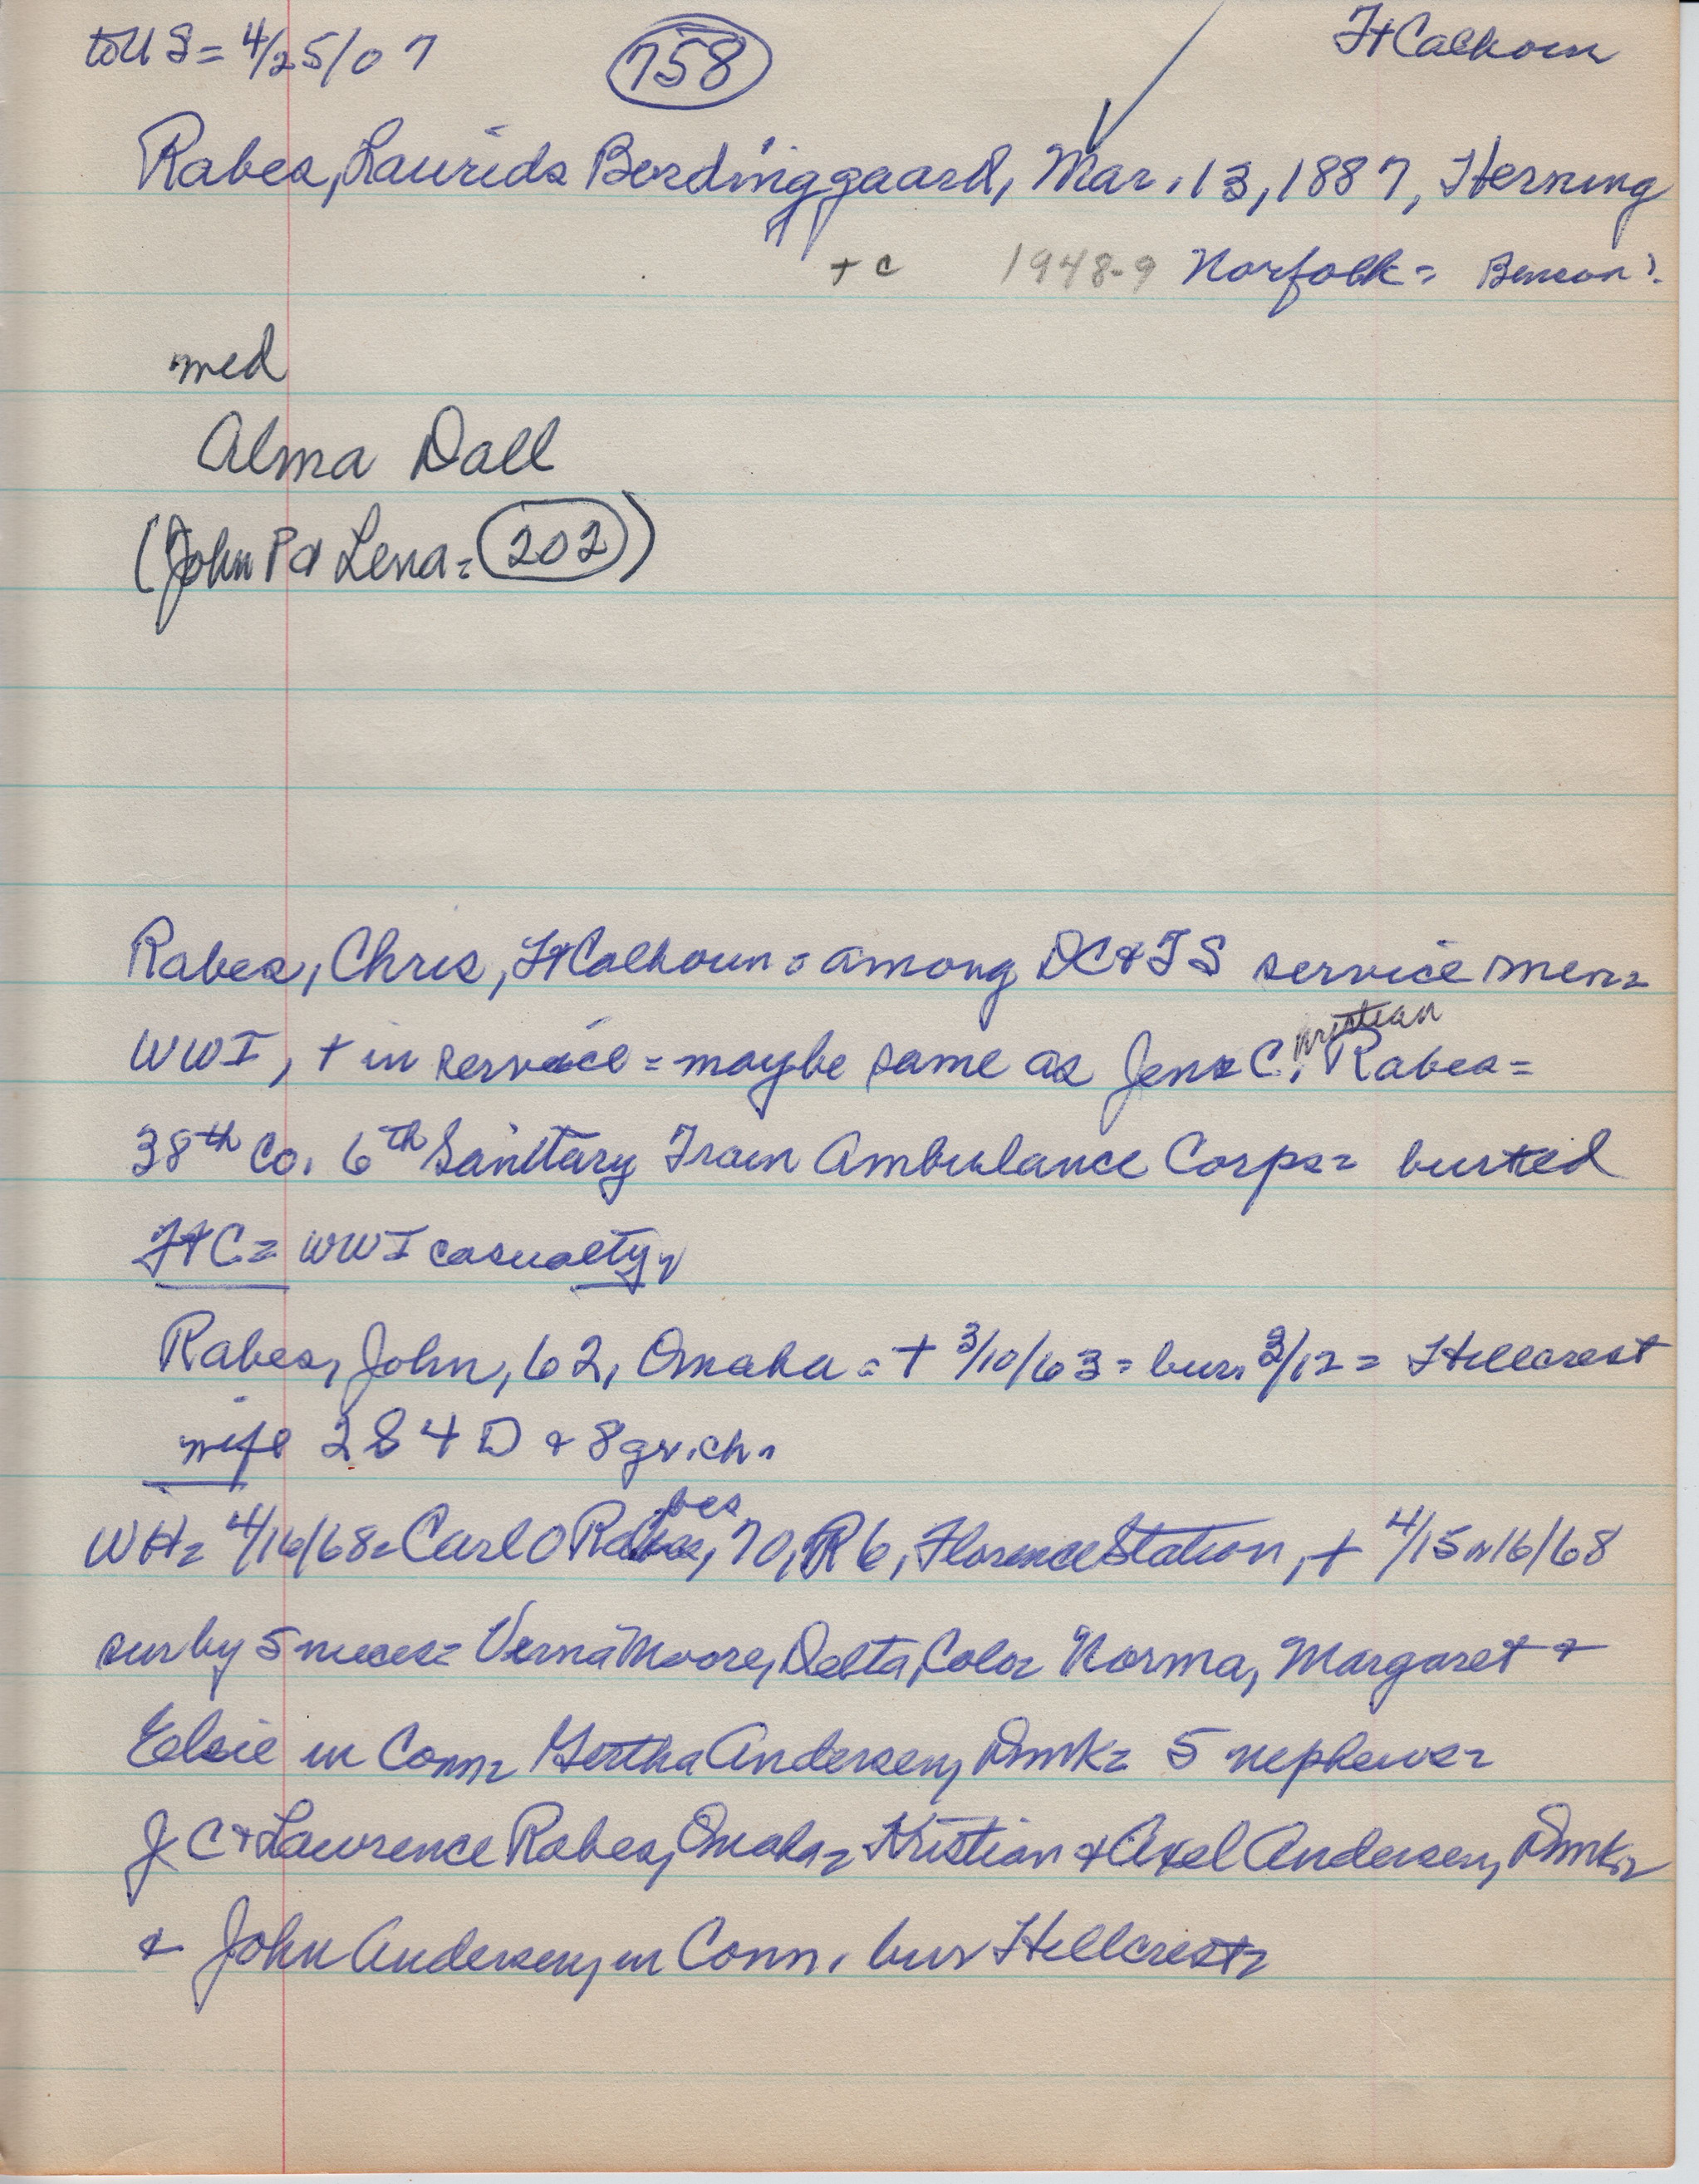 to U S = 4/25/07 758 Ft Calhoun
Rabes, Laurids Berdinggaard, Mar. 13, 1887, Herning
+ c 1948-9 Norfolk = Benson?
med
Alma Dall
(John P & Lena = 202)
Rabes, Chris, Ft Calhoun = among DC & FS service men =
WWI, + in service = maybe same as Jens C.hristian Rabes =
38th Co. 6th Sanitary Train Ambulance Corps = buried
Ft C = WWI casualty,
Rabes, John, 62, Omaha = + 3/10/63 = bur. 3/12 = Hillcrest
wife 2 S 4 D & 8 gr.ch.
WH = 4/16/68 = Carl O Rabes, 70, R 6, Florence Station, + 4/15 or 16/68
sur by 5 nieces = Verna Moore, Delta, Colo = Norma, Margaret &
Elsie in Conn = Gertha Andersen, Dmk = 5 nephews =
J C & Lawrence Rabes, Omaha = Kristian & Axel Andersen, Dmk =
& John Andersen, in Conn. bur Hillcrest =